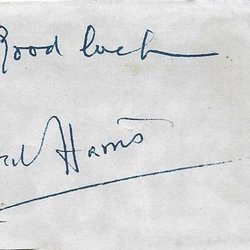 Good luck
Harris